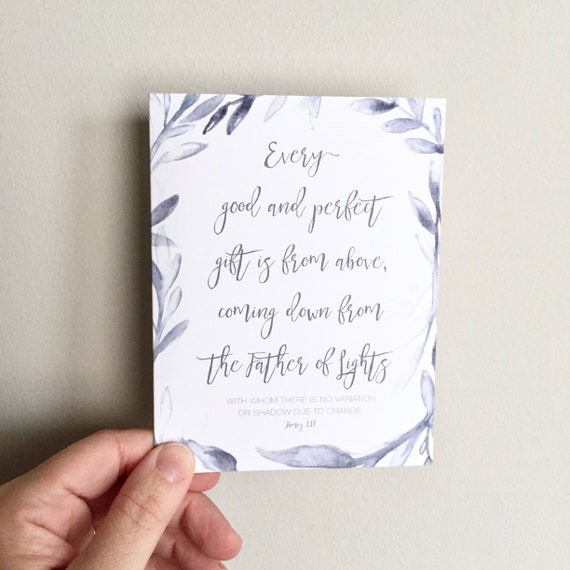 Every
good and perfect
gift is from above,
coming down from
the Father of Lights
WITH WHOM THERE IS NO VARIATION
OR SHADOW DUE TO CHANGE.
James 1:17